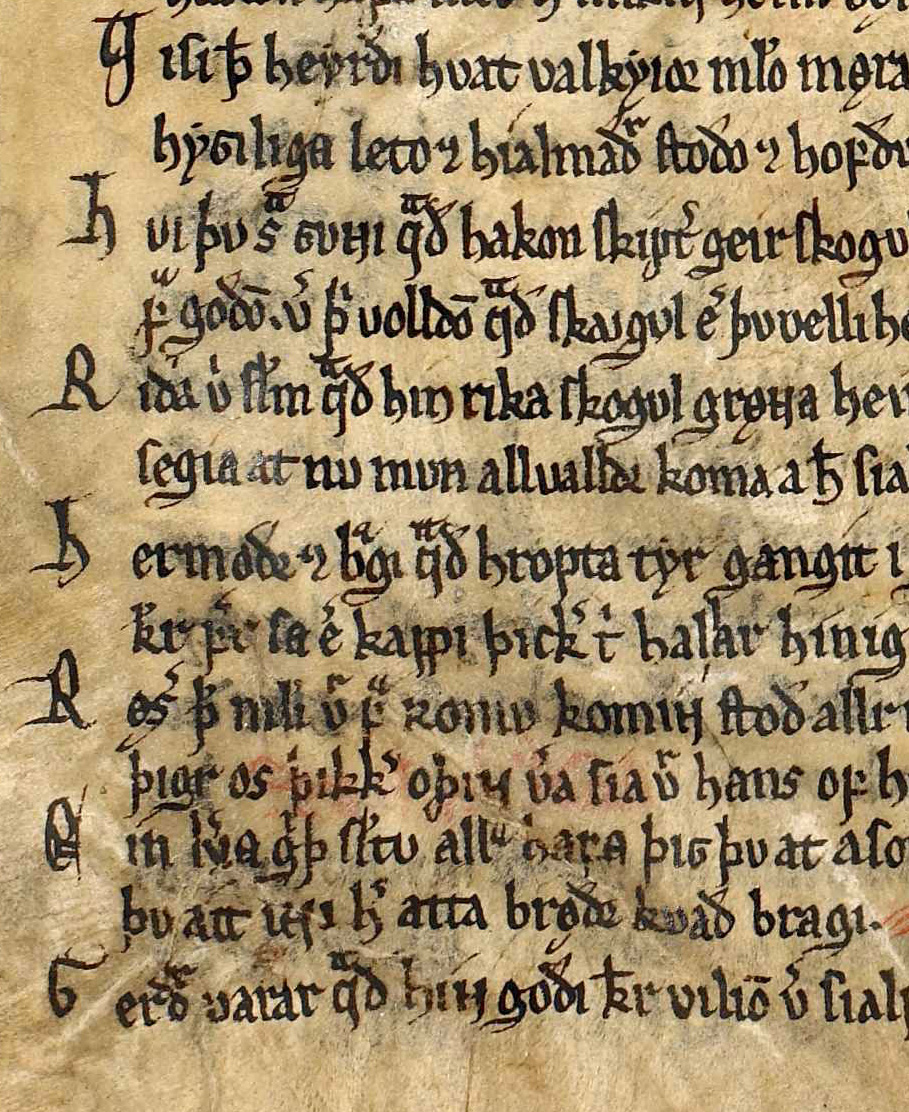 ꝩisi þ̄ heyrði hvat valkyiꝛ mlo męra
hygiliga leto ⁊ hialmaðr stodo ⁊ hofdu
Hvi þv s̄ gunni qͣð hakon skiptꝰ geirskogul
godō. v̄ þ̄ volldō qͣð skaugul eꝰ þv velli he
Rida v̄ skm qͣð hin rika skogul grøna hei
segia at nu mun allvalldꝛ koma a h̄ sia
Hermodꝛ ⁊ bͣgi qͣð hropta tyr gangit i
k̄r ꝼ̄r sa ē kappi þickꝰ t̄ hallar hinig
Resꝰ þ̄ mlti v̄ ꝼͣ romu kominn stod allr
þigr os þikkꝰ oþinn v̄a sia v̄ hans of h
grið skltu allͣ hafa þig þv at aso
þv att inni hꝰ atta brødꝛ kvað bragi.
Gerðr varar qͣð hinn goði k̄r viliō v̄ sialf